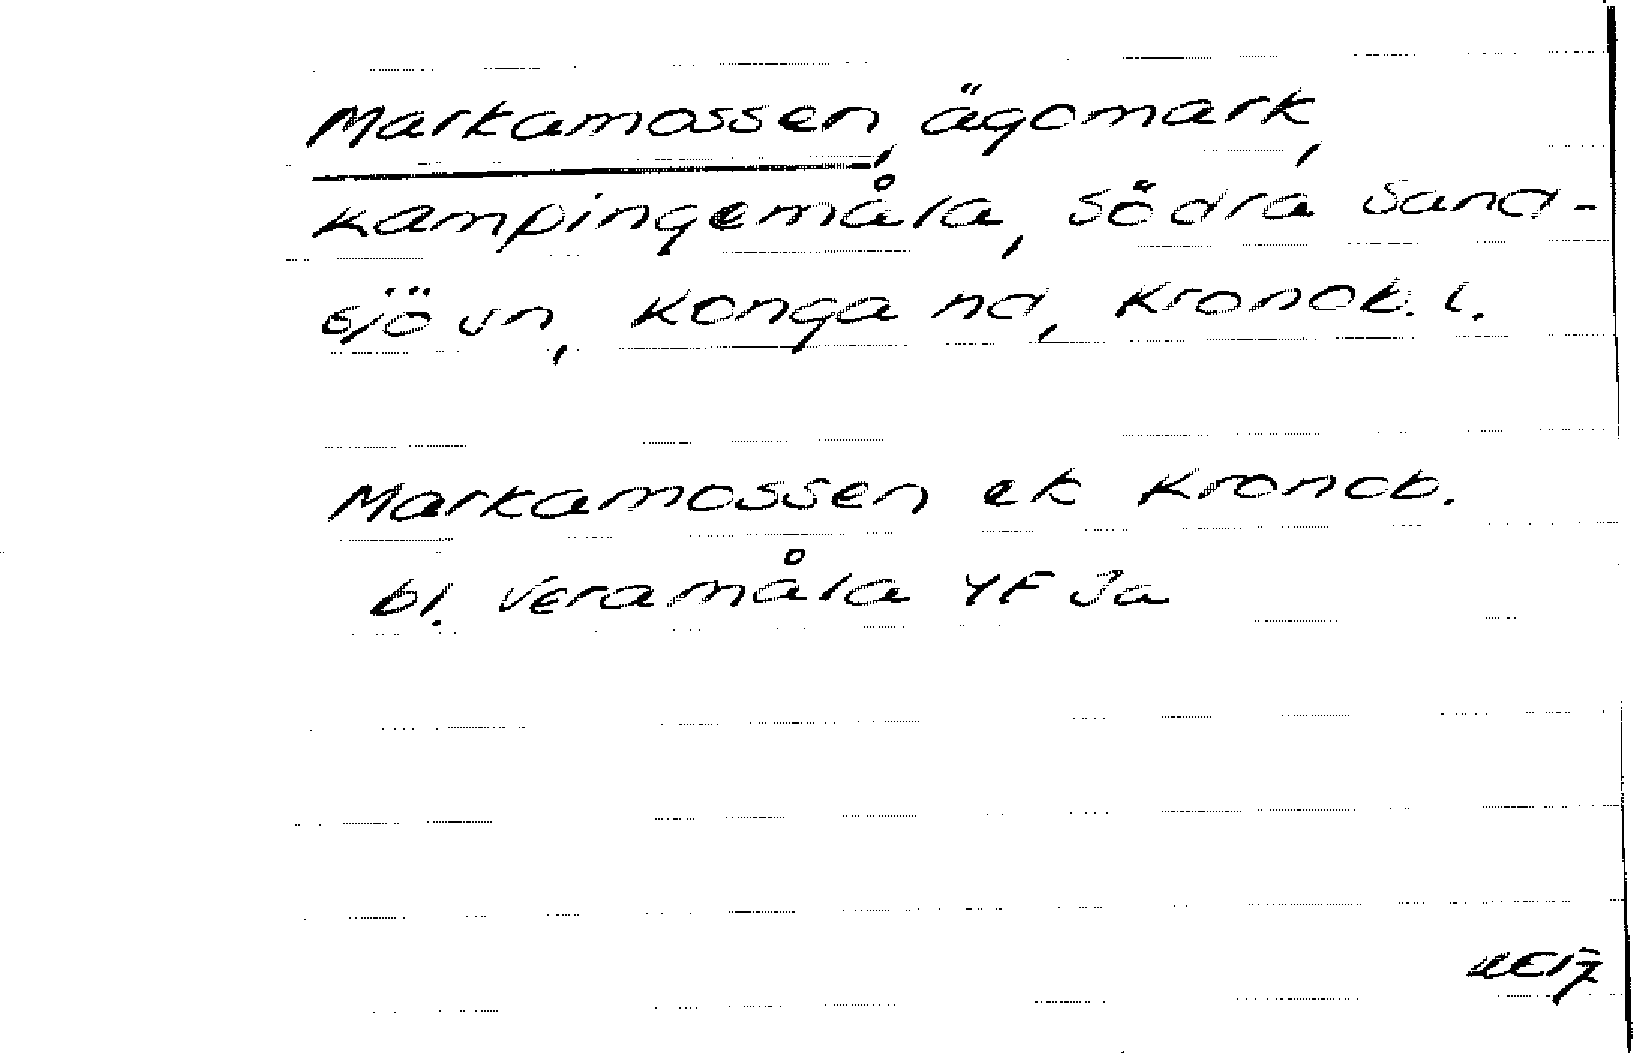 Markamossen, ägomark,
Kampingemåla, Södra Sand-
sjö sn, Konga hd, Kronob. l.
Markamossen ek Kronob.
bl. Veramåla YF Ja